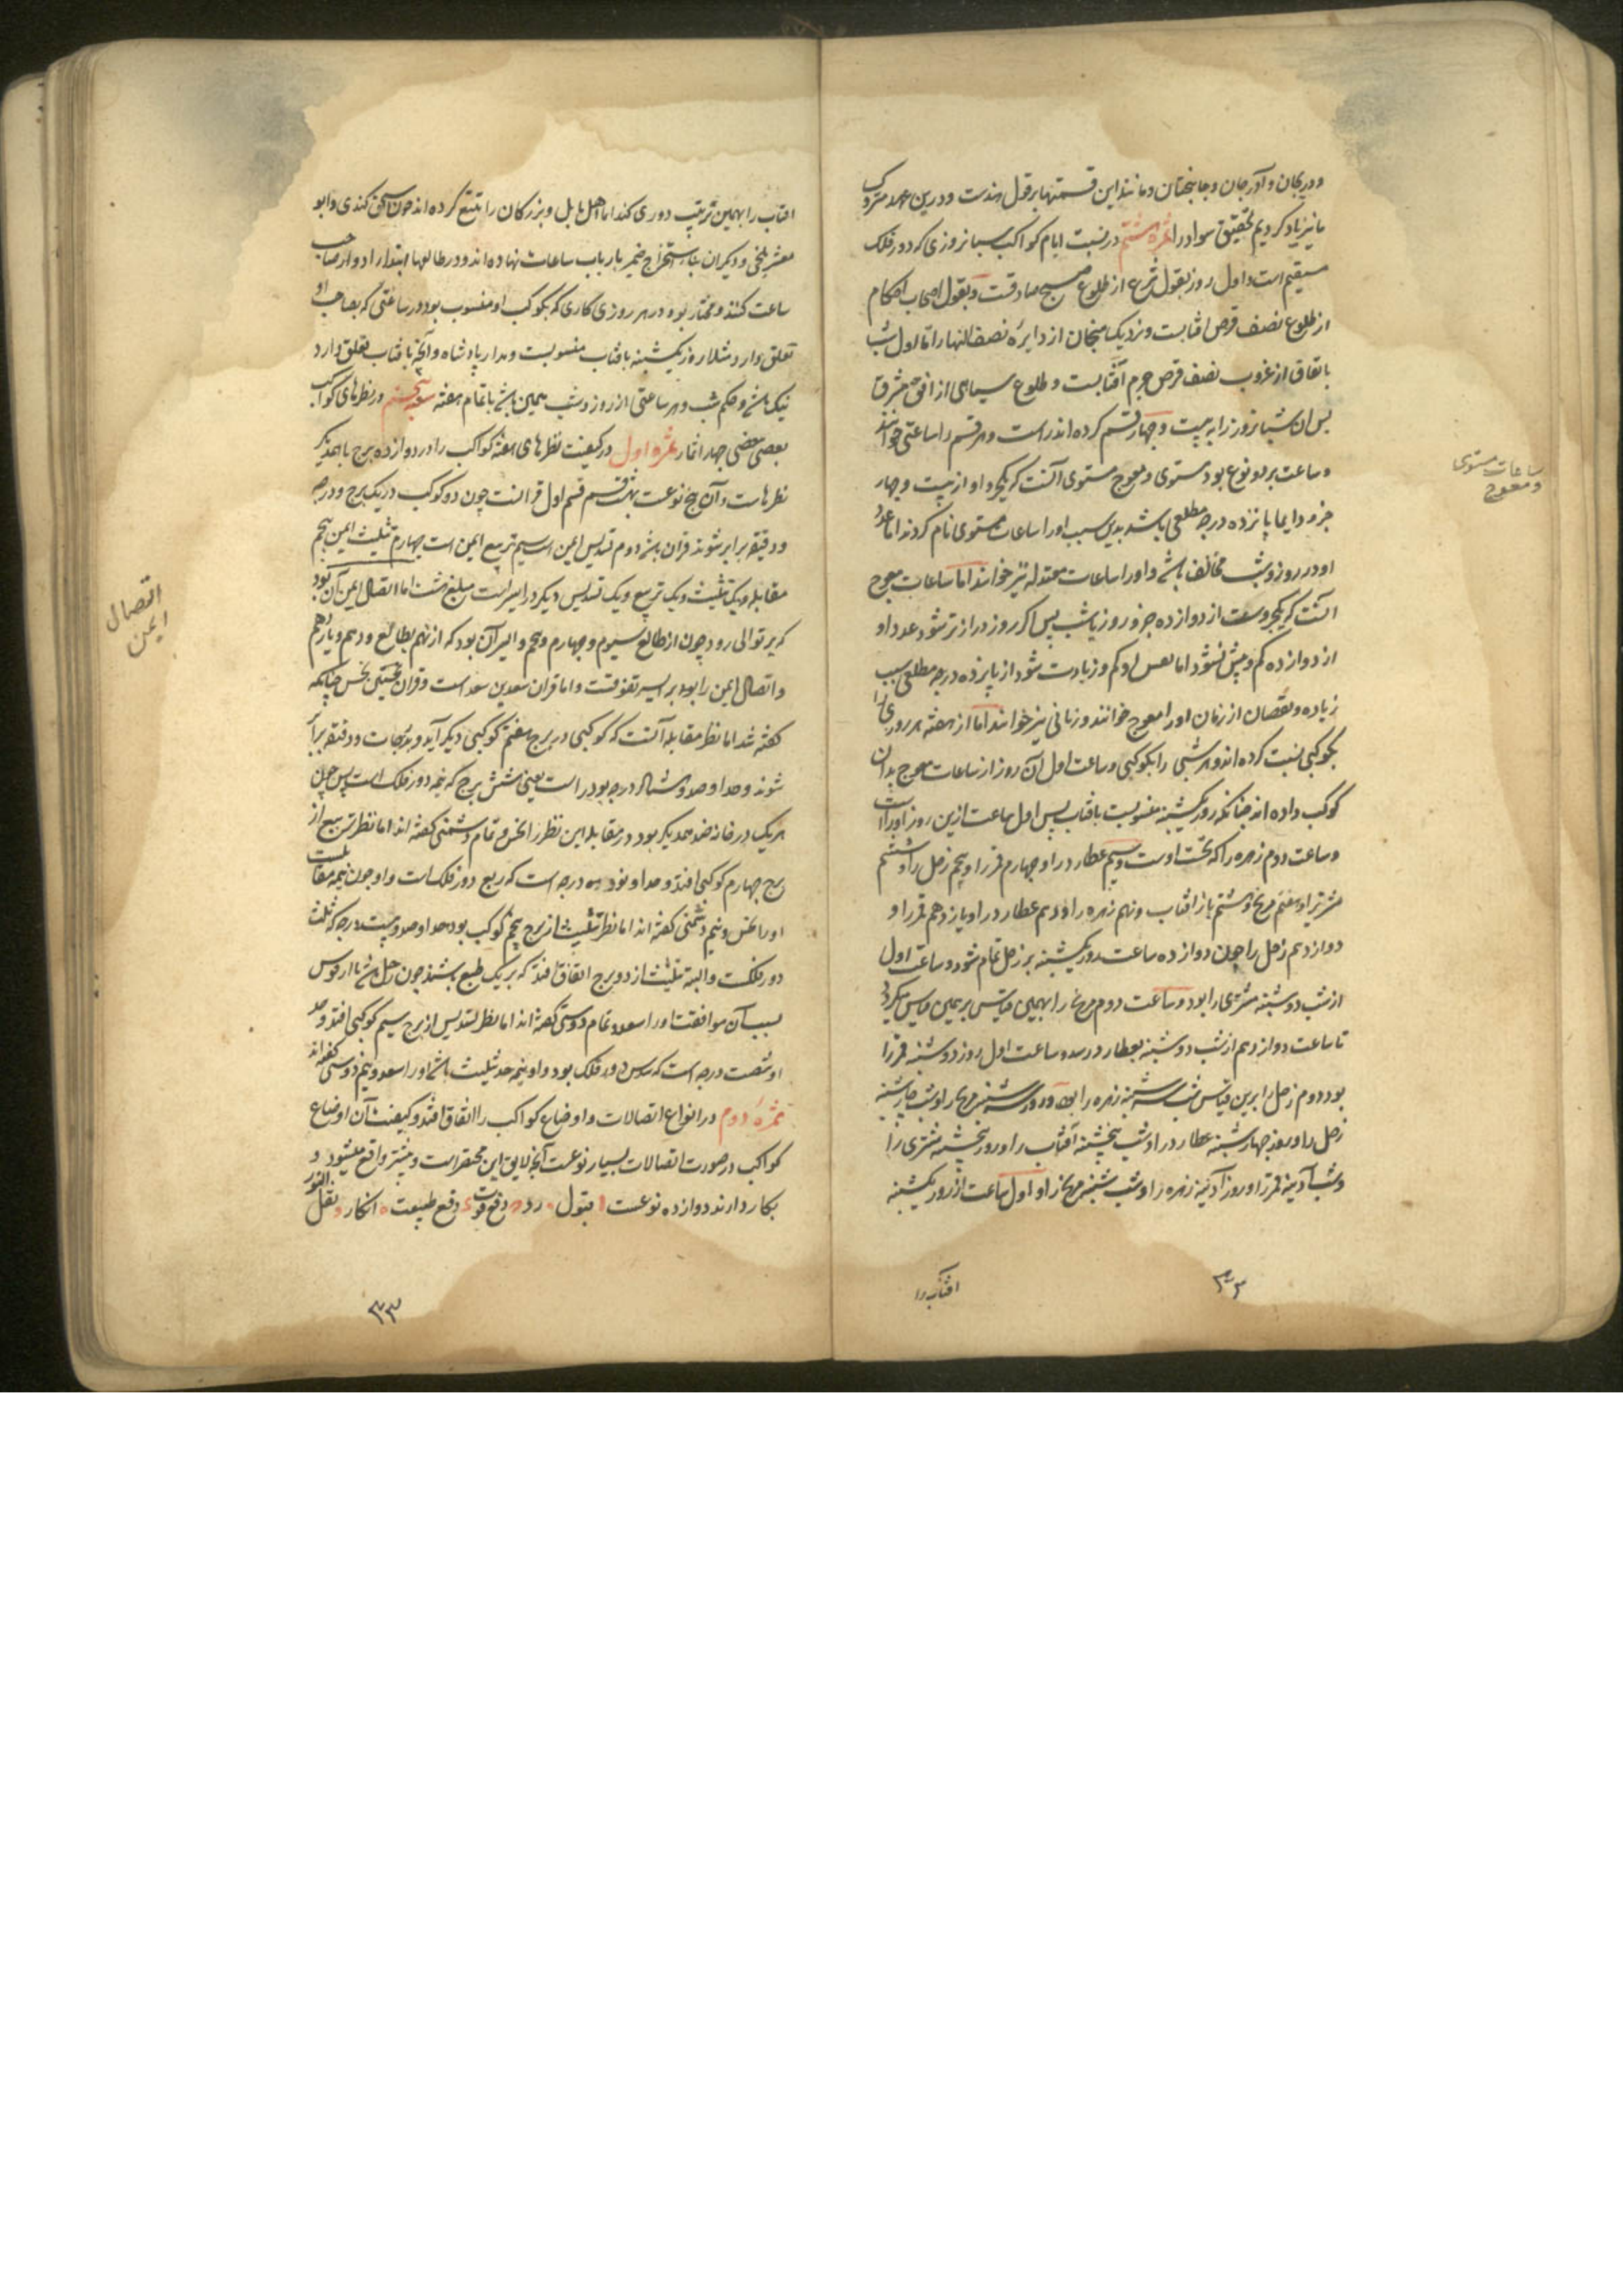 ودریجان و آدرجان و جانبختان و مانند این قسمتها بر قول هندست و درین عهد متروک
ما نیز یاد کردیم تحقیق سواد را ثمره هشتم در نسبت ایام کواکب شبانروزی که دور فلک
مستقیم است و اول روز بقول شرع از طلوع صبح صادقست و بقول اصحاب احکام
از طلوع نصف قرص افتابست و نزدیک منجمان از دایره نصف النهار اما اول شب
باتفاق از غروب نصف قرص جرم آفتابست و طلوع سیاهی از افق مشرق
پس ان شبانروز را به بیست و چهار قسم کرده اند راست و هر قسم را ساعتی خوانند
و ساعت بر دو نوع بود مستوی و معوج مستوی آنست که یکجزو او از بیست و چهار
ساعات مستوی
و معوج
جزو دایما پانزده درجه مطلعی باشد بدین سبب او را ساعات مستوی نام کردند اما عدد
او در روز و شب مخالف باشد و او را ساعات معتدله نیز خوانند اما ساعات معوج
آنست که یکجزوست از دوازده جزو روز یا شب پس اگر روز درازتر شود عدد او
از دوازده کم و بیش نشود اما نفس او کم و زیادت شود از پانزده درجه مطلعی بسبب
زیاده و نقصان از زمان او را معوج خوانند و زمانی نیز خوانند اما از هفته هر روزی را
بکوکبی نسبت کرده اند و هر شبی را بکوکبی و ساعت اول آن روز از ساعات معوج بدان
کوکب داده اند چنانکه روز یکشنبه منسوبست بافتاب پس اول ساعت ازین روز او راست
و ساعت دوم زهره را که تحت اوست و سیم عطارد را و چهارم قمر را و پنجم زحل را و ششم
مشتری را و هفتم مریخ و هشتم باز افتاب و نهم زهره را و دهم عطارد را و یازدهم قمر را و
دوازدهم زحل را چون دوازده ساعت روز یکشنبه بر زحل تمام شود و ساعت اول
از شب دوشنبه مشتری را بود و ساعت دوم مریخ را بهمین قیاس بر همین قیاس میگردد
تا ساعت دوازدهم از شب دوشنبه بعطارد رسد و ساعت اول روز دوشنبه قمر را
بود دوم زحل را برین قیاس شب سه شنبه زهره را بود و روز سه شنبه مریخ را و شب چارشنبه
زحل را و روز چهارشنبه عطارد را و شب پنجشنبه آفتاب را و روز پنجشنبه مشتری را
و شب آدینه قمر را و روز آدینه زهره را و شب شنبه مریخ را و اول ساعت از روز یکشنبه
افتاب را
افتاب را بهمین ترتیب دوری کند اما اهل بابل و بزرگان را تتبع کرده اند چون اسحق کندی و ابو
معشر بلخی و دیگران بناء استخراج ضمیر بارباب ساعات نهاده اند و در طالعها ابتدا را دوار صاحب
ساعت کنند و مختار بود در هر روزی کاری که بکوکب او منسوب بود در ساعتی که بصاحب او
تعلق دارد مثلا روز یکشنبه بافتاب منسوبست و مدار پادشاه و آنچه بافتاب تعلق دارد
نیک باشد و حکم شب و هر ساعتی از روز و شب همین باشد تا تمام هفته پنجم در نظرهای کواکب
بعضی ببعضی چهار اثمار ثمره اول در کیفیت نظرهای هفته کواکب را در دوازده برج با همدیگر
نظرهاست و آن پنج نوعست بهفت قسم قسم اول قرانست چون دو کوکب در یک برج و درجه
و دقیقه برابر شوند قران باشد دوم تسدیس ایمن است سیم تربیع ایمن است چهارم تثلیث ایمن پنجم
مقابله و یک تثلیث و یک تربیع و یک تسدیس دیگر در ایسر است مبلغ هشت اما اتصال ایمن آن بود
اتصال
ایمن
که بر توالی رود چون از طالع سیوم و چهارم و پنجم و ایسر آن بود که از نهم بطالع و دهم و یازدهم
و اتصال ایمن را بود بر ایسر تفوقست و اما قران سعدین سعد است و قران نحسین نحس چنانکه
گفته شد اما نظر مقابله آنست که کوکبی در برج هفتم کوکبی دیگر آید و بدرجات و دقیقه برابر
شوند و حد او صد و هشتاد درجه بود راست یعنی شش برج که نیمه دور فلک است پس چون
هر یک در خانه ضد همدیگر بود در مقابله این نظر را نحس و تمام دشمنی گفته اند اما نظر تربیع از
برج چهارم کوکبی افتد و حد او نود درجه است که ربع دور فلک است و او چون نیمه مقابله است
او را نحس و نیم دشمنی گفته اند اما نظر تثلیث از برج پنجم کوکب بود حد او صد و بیست درجه که ثلث
دور فلکست و البته تثلیث از دو برج اتفاق افتد که بر یک طبع باشند چون حمل باشد با از قوس
بسبب آن موافقت او را سعد و تمام دوستی گفته اند اما نظر تسدیس از برج سیم کوکبی افتد و حد
او شصت درجه است که سدس دور فلک بود و او نیمه حد تثلیث باشد او را سعد و نیم دوستی گفته اند
ثمره دوم در انواع اتصالات و اوضاع کواکب را اتفاق افتد و کیفیت آن اوضاع
کواکب در صورت اتصالات بسیار نوعست آنچه لایق این مختصر است و بیشتر واقع میشود و
بکار دارند دوازده نوعست ا قبول رد دفع قوت دفع طبیعت انکار نقل النور